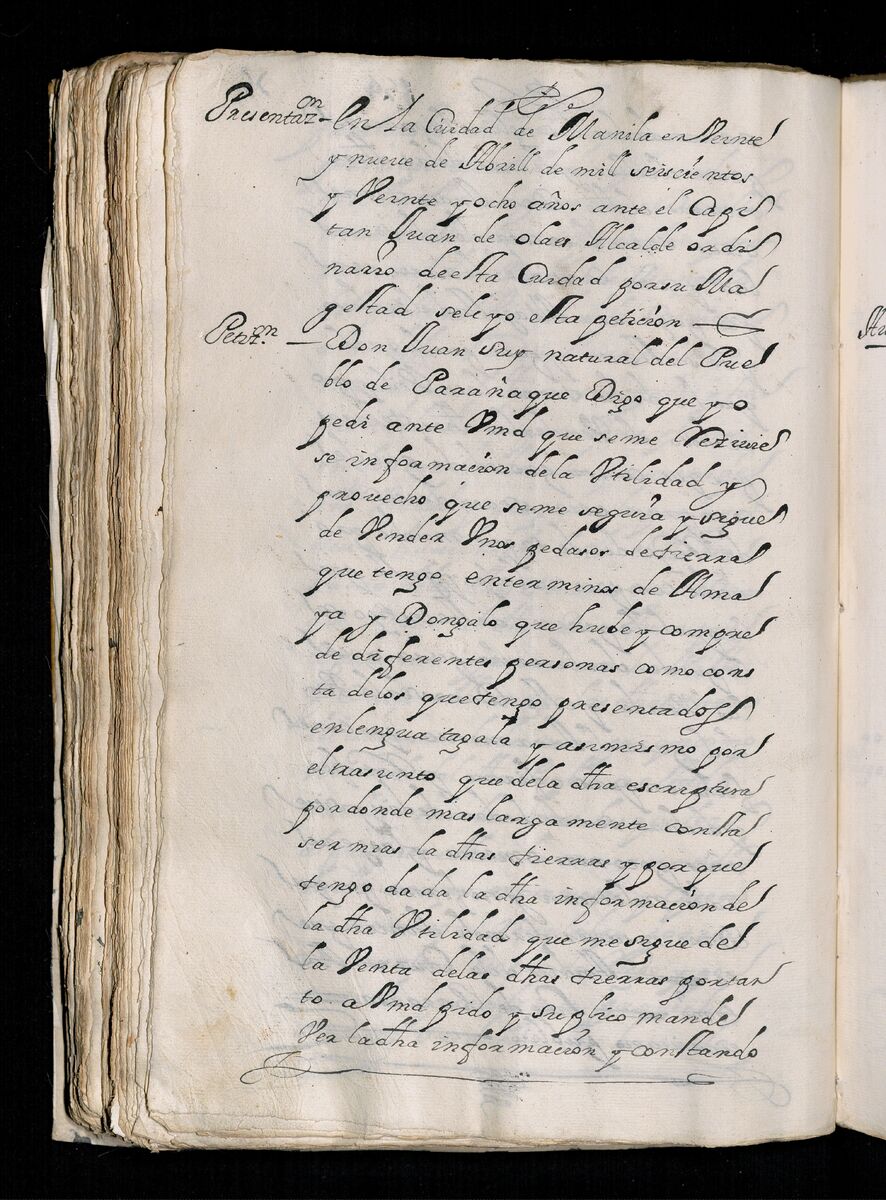 Presentaz.on En la Ciudad de Manila en Veinte
y nueve de Abrill de mill seiscientos
y Veinte y ocho años ante el Capi
tan Juan de olaes Alcalde ordi
nario de esta Ciudad por su Ma
gestad se leyo esta peticion
Petiz.on Don Juan Suy natural del Pue
blo de Parañaque Digo que yo
pedi ante Vmd que se me Reziuie
se informacion de la Vtilidad y
provecho que se me seguia y sigue
de Vender Vnos pedasos de tierra
que tengo en terminos de Ama
ya y Dongalo que hube y compre
de diferentes personas como cons
ta de los que tengo presentados
en lengua tagala y asimismo por
el trasunto que de la dha escriptura
por donde mas larga mente consta
ser mias la dhas tierras y por que
tengo dada la dha informacion de
la dha Vtilidad que me sigue de
la Venta de las dhas tierras por tan
to a Vmd pido y suplico mande
Ver la dha informacion y constando